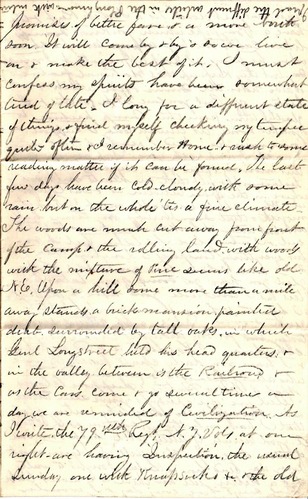 promise of better fare & a more
soon. It will come by & by & so we live
on & make the best of it. I must
confess my spirits have been somewhat
tired of late. I long for a different state
of things, & find myself checking my temper
quite often & I remember Home. & rush to some
reading matter if it can be found. The last
few days have been cold. cloudy, with some
rain but on the whole 'tis a fine climate
The woods are much cut away from front
of the camp & the rolling land with woods
with the mixture of Pine seems like old
N.E. Upon a hill some more than a mile
away stands a brick mansion painted
drab. surrounded by tall oaks, in which
Genl Longstreet held his head quarters. &
in the valley between is the Railroad &
as the Cars. come & go several times a
day we are reminded of Civilization. As
I write, the 79th Regt. N.Y. Vols at our
right are having Inspection, the usual
Sunday one with Knapsacks &c & the old